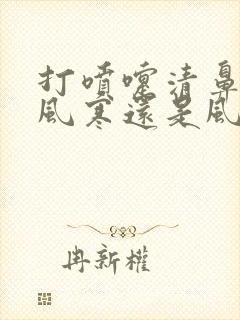 打噴嚏清鼻
風寒還是風
冉新權